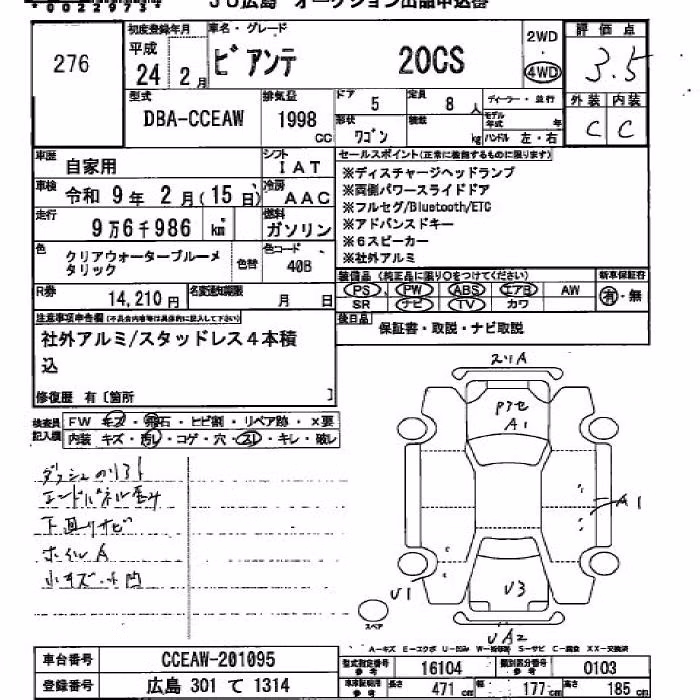 JU広島 オークション出品申込書
276
初度登録年月
平成
24 2 月
車名・グレード
ビアンテ 20CS
2WD
4WD
評価点
3.5
外装 内装
C C
型式
DBA-CCEAW
排気量
1998 CC
ドア 5
定員 8 人
ディーラー・並行
形状 ワゴン
積載 kg
モデル年式 年
ハンドル 左・右
車歴 自家用
シフト IAT
車検 令和 9 年 2 月(15 日)
冷房 AAC
走行 9万6千986 km
燃料 ガソリン
色 クリアウォーターブルーメタリック
色替
色コード 40B
R券 14,210 円
名変通知期限 月 日
セールスポイント(正常に機能するものに限ります)
※ディスチャージヘッドランプ
※両側パワースライドドア
※フルセグ/Bluetooth/ETC
※アドバンスドキー
※6スピーカー
※社外アルミ
装備品(純正品に限り○をつけてください)
新車保証書
PS PW ABS エアB AW
SR ナビ TV カワ
有・無
後日品
保証書・取説・ナビ取説
注意事項申告欄(不具合内容等は具体的に記入して下さい)
社外アルミ/スタッドレス4本積
込
修復歴 有〔箇所 〕
検査員記入欄
FW キズ・飛石・ヒビ割・リペア跡・X要
内装 キズ・汚レ・コゲ・穴・スレ・キレ・破レ
ダッシュのり外ト
エンドパネル歪み
下廻りサビ
ホイルA
小キズ・小凹
A1
A1
U1
U3
UA2
スペア
A-キズ E-エクボ U-凹み W-補修跡 S-サビ C-腐食 XX-交換済
車台番号 CCEAW-201095
登録番号 広島 301 て 1314
型式指定番号参考 16104
類別区分番号参考 0103
車車証明用参考 長さ 471 cm 幅 177 cm 高さ 185 cm